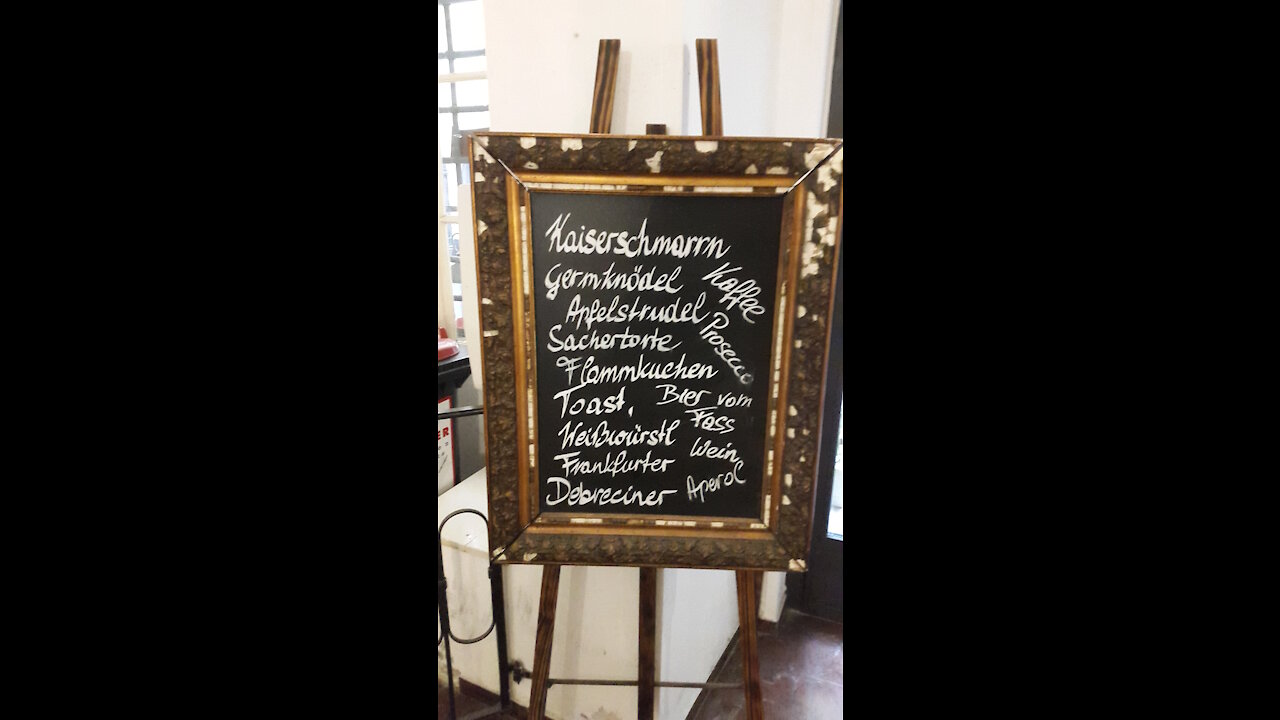 Kaiserschmarrn
Germknödel
Kaffee
Apfelstrudel
Prosecco
Sachertorte
Flammkuchen
Toast,
Bier vom
Fass
Weißwürstl
Wein
Frankfurter
Debreciner
Aperol